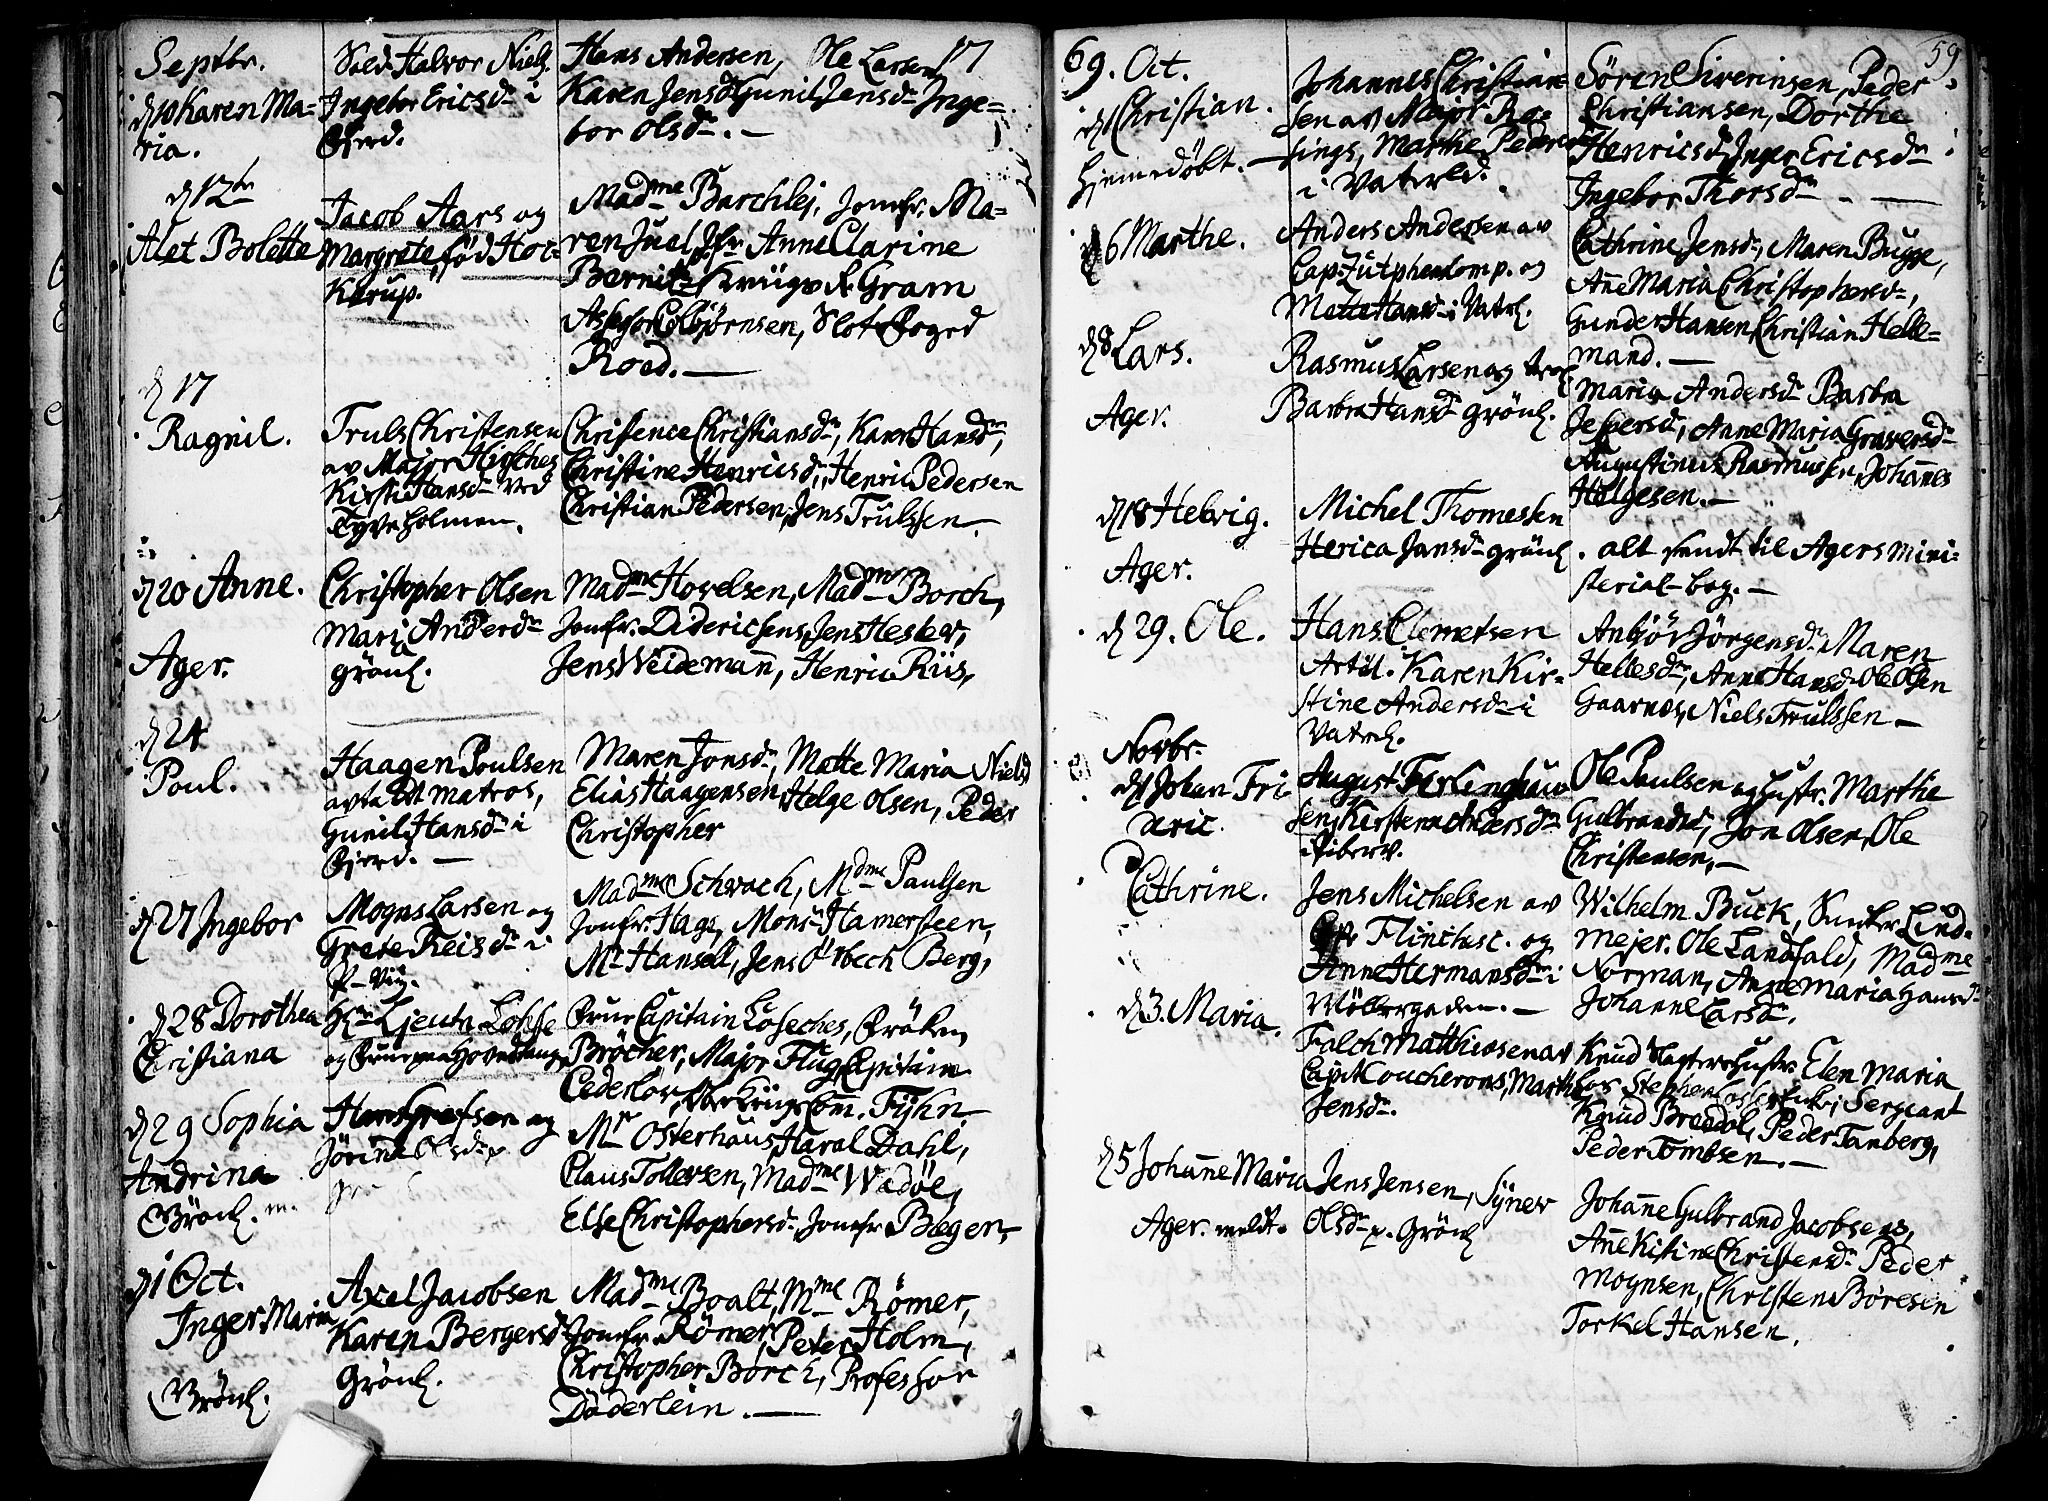 Septbr.
d 10 Karen Ma=
ria.
Sold. Halvor Niels.
Ingebor Ericsdr i
Hans Andersen, Ole Larsen,
Karen Jensd Gunil Jensdr Inge=
bor Olsdr. —
17
d 12te
Alet Bolette
Jacob Aars og
Margrete, fød Hot=
Madme Barchlej, Jomfr. Ma=
ren Juel, Jfr Anne Clarine
Gram
Colbjørnsen, Slots Foged
Roed. —
d 17
Ragnil.
Truls Christensen
av Major Hirsches
Kirsti Hansdr ved
Tyveholmen.
Christence Christiansdr, Karen Hansdr,
Christine Henricsdr, Henric Pedersen
Christian Pedersen, Jens Trulssen. —
d 20 Anne.
Ager.
Christopher Olsen
Mari Andersdr
Grönl.
Madme Hovelsen, Madme Borch,
Jomfr. Diderichsens, Jens Hesler,
Jens Weidemañ, Henric Riis,
d 24
Poul.
Haagen Poulsen
avtakt matros,
Gunil Hansdr i
Fjerd. —
Maren Jonsdr, Mette Maria Nielsd
Elias Haagensen, Helge Olsen, Peder
Christopher
d 27 Ingebor
Mogns Larsen og
Grete Reisdr i
P-Vig.
Madme Schwach, Mdme Paulsen
Jomfr. Hage, Monsr Hamersteen,
Mr Hansell, Jens Ørbech Berg,
d 28 Dorothea
Christiana
Hr Ljeutn. Lohse
og Frue
Frue Capitain Loseches, Frøken
Bröcher, Major Flug, Capitain
Cederlov, Krigs Com. Fÿhn
d 29 Sophia
Andrina
Grönl. m.
og
Jörine Olsdr
Mr Osterhaus, Haral Dahl,
Claus Tollersen, Madme Wadöe,
Else Christophersdr Jomfr. Bøgen,
d 1 Oct.
Inger Maria
Grönl.
Axel Jacobsen
Karen Bergersd
Grönl.
Madme Boalt, Mme Römer,
Jomfr. Römer, Peter Holm,
Christopher Borch, Professor
Döderlein. —
69. Oct.
59
d 1 Christian.
Hjemedöbt. —
Johannes Christian=
sen av Major Ro=
sings, Marthe Pedersd
i Vaterld.
Sören Siverinsen, Peder
Christiansen, Dorthe
Henricsd, Inger Ericsdr
Ingebor Thorsdr —
d 6 Marthe.
Anders Andersen av
Cap. Zutphens Comp. og
Mette Hansdr i Vatrl.
Cathrine Jensdr, Maren Bugge,
Añe Maria Christophersdr,
Gunder Hansen, Christian Helle=
mand. —
d 8 Lars.
Ager.
Rasmus Larsen og
Barbra Hansdr Grönl.
Maria Andersdr Barbra
Jespersd, Anne Maria Graversdr
Augustinus Rasmussen, Johannes
Helgesen. —
d 18 Helvig.
Ager.
Michel Thomessen
Herica Jansdr Grönl
. alt sendt til Agers mini=
sterial-bog. —
d 29. Ole.
Hans Clemetsen
Artil. Karen Kir=
stine Andersdr i
Vatrl.
Anbjör Jörgensdr, Maren
Hellesdr, Anne Hansd, Ole Olsen
Gaarnæs, Niels Trulssen —
Novbr.
d 1 Johan Fri
dric.
August
sen, Kirstene Andersdr
i Piberv.
Ole Paulsen og Hustr. Marthe
Gulbrandsd, Jon Olsen, Ole
Christensen, —
Cathrine.
Jens Michelsen av
Flinthes C. og
Anne Hermansdr i
Möllergaden. —
Wilhelm Buck, Snitker Lind=
mejer. Ole Landfald, Madme
Norman, Anne Maria Hansdr
Johanne Larsdr.
d 3. Maria.
Falch Matthiesen av
Capit. Coucherons, Marthe
Jensdr.
Knud Slagters Hustr. Elen Maria
Sergeant
Knud Bredal, Peder Tanberg,
Peder Tombsen. —
d 5 Johañe Maria
Ager. meldt.
Jens Jensen, Sÿnev
Olsdr p. Grönl
Johañe Gulbrand Jacobsens,
Añe Kistine Christensdr Peder
Mognsen, Christen Böresen
Torkel Hansen.